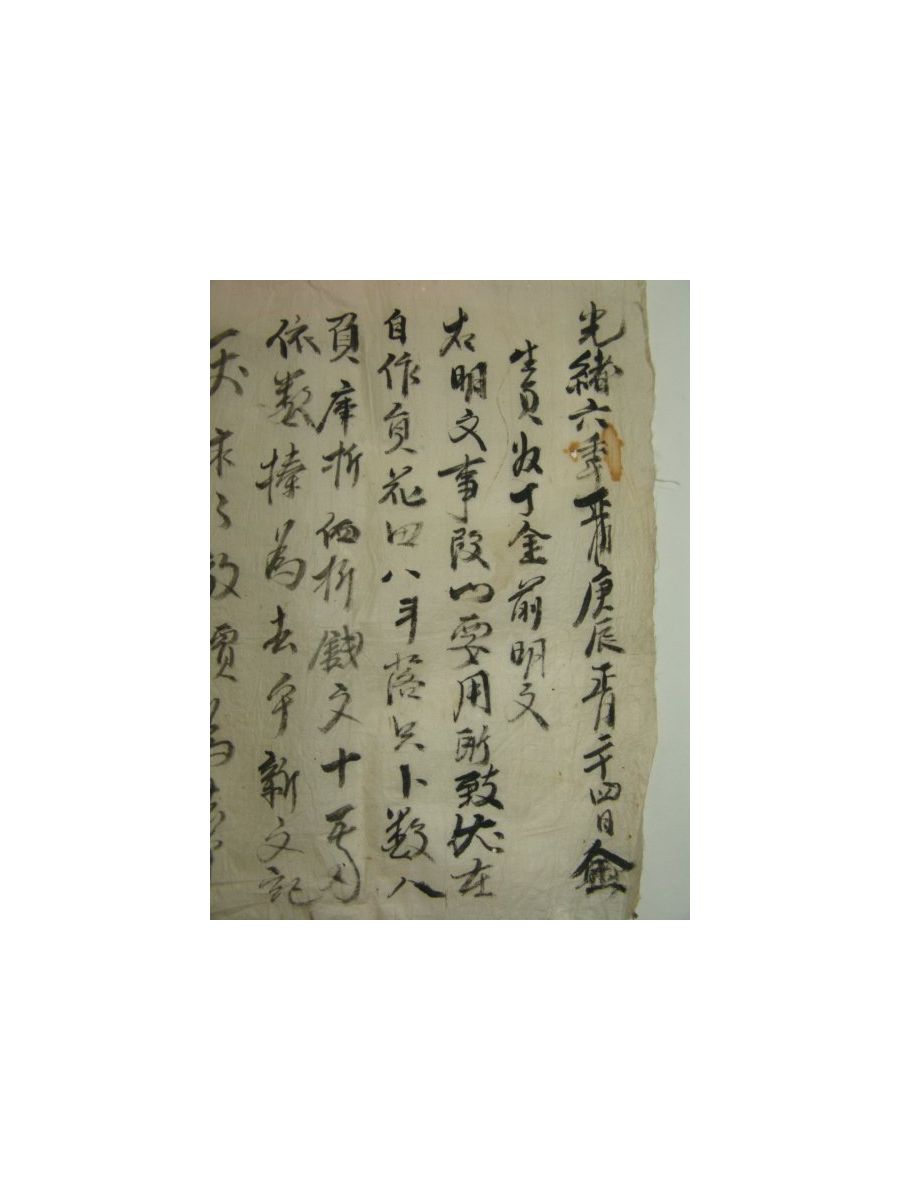 光緖六年正月庚辰正月二十四日金
生員奴丁金前明文
右明文事段以要用所致伏在
自作員花田八斗落只卜数八
負庫折価折戥文十五兩
依数捧為去乎新文記
一丈永永放賣為